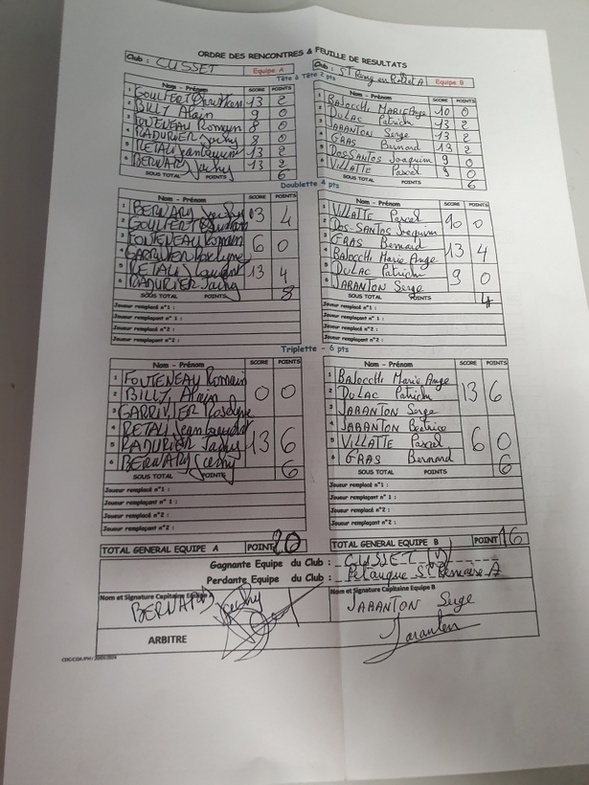 ORDRE DES RENCONTRES & FEUILLE DE RESULTATS
Club : CUSSET Equipe A
Club : ST Rémy en Rollat A Equipe B
Tête à Tête 2 pts
Nom - Prénom SCORE POINTS
1 13 2
2 BILLY Alain 9 0
3 FONTENEAU Romain 8 0
4 RADURIER Jacky 8 0
5 RETALI Jean Laurent 13 2
6 BERNARD Jacky 13 2
SOUS TOTAL POINTS 6
Nom - Prénom SCORE POINTS
1 BAJOCCHI MARIE Ange 10 0
2 DULAC Patrick 13 2
3 JARANTON Serge 13 2
4 GRAS Bernard 13 2
5 DOS SANTOS Joaquim 9 0
6 VILLATTE Pascal 9 0
SOUS TOTAL POINTS 6
Doublette 4 pts
Nom - Prénom SCORE POINTS
1 BERNARD Jacky 13 4
2
3 FONTENEAU Romain 6 0
4 GARRIVIER Roselyne
5 RETALI Laurent 13 4
6 RADURIER Jacky
SOUS TOTAL POINTS 8
Joueur remplacé n°1 :
Joueur remplaçant n° 1 :
Joueur remplacé n°2 :
Joueur remplaçant n°2 :
Nom - Prénom SCORE POINTS
1 VILLATTE Pascal 10 0
2 DOS-SANTOS Joaquim
3 GRAS Bernard 13 4
4 BAJOCCHI Marie Ange
5 DULAC Patrick 9 0
6 JARANTON Serge
SOUS TOTAL POINTS 4
Joueur remplacé n°1 :
Joueur remplaçant n°1 :
Joueur remplacé n°2 :
Joueur remplaçant n°2 :
Triplette - 6 pts
Nom - Prénom SCORE POINTS
1 FONTENEAU Romain
2 BILLY Alain 0 0
3 GARRIVIER Roselyne
4 RETALI Jean Laurent
5 RADURIER Jacky 13 6
6 BERNARD Jacky
SOUS TOTAL POINTS 6
Joueur remplacé n°1 :
Joueur remplaçant n°1 :
Joueur remplacé n°2 :
Joueur remplaçant n°2 :
Nom - Prénom SCORE POINTS
1 BAJOCCHI Marie Ange
2 DULAC Patrick 13 6
3 JARANTON Serge
4 JARANTON Béatrice
5 VILLATTE Pascal 6 0
6 GRAS Bernard
SOUS TOTAL POINTS 6
Joueur remplacé n°1 :
Joueur remplaçant n°1 :
Joueur remplacé n°2 :
Joueur remplaçant n°2 :
TOTAL GENERAL EQUIPE A POINT 20
TOTAL GENERAL EQUIPE B POINT 16
Gagnante Equipe du Club : CUSSET (V)
Perdante Equipe du Club : Pétanque St Rémoise A
Nom et Signature Capitaine Equipe A
BERNARD Jacky
Nom et Signature Capitaine Equipe B
JARANTON Serge
Jaranton
ARBITRE